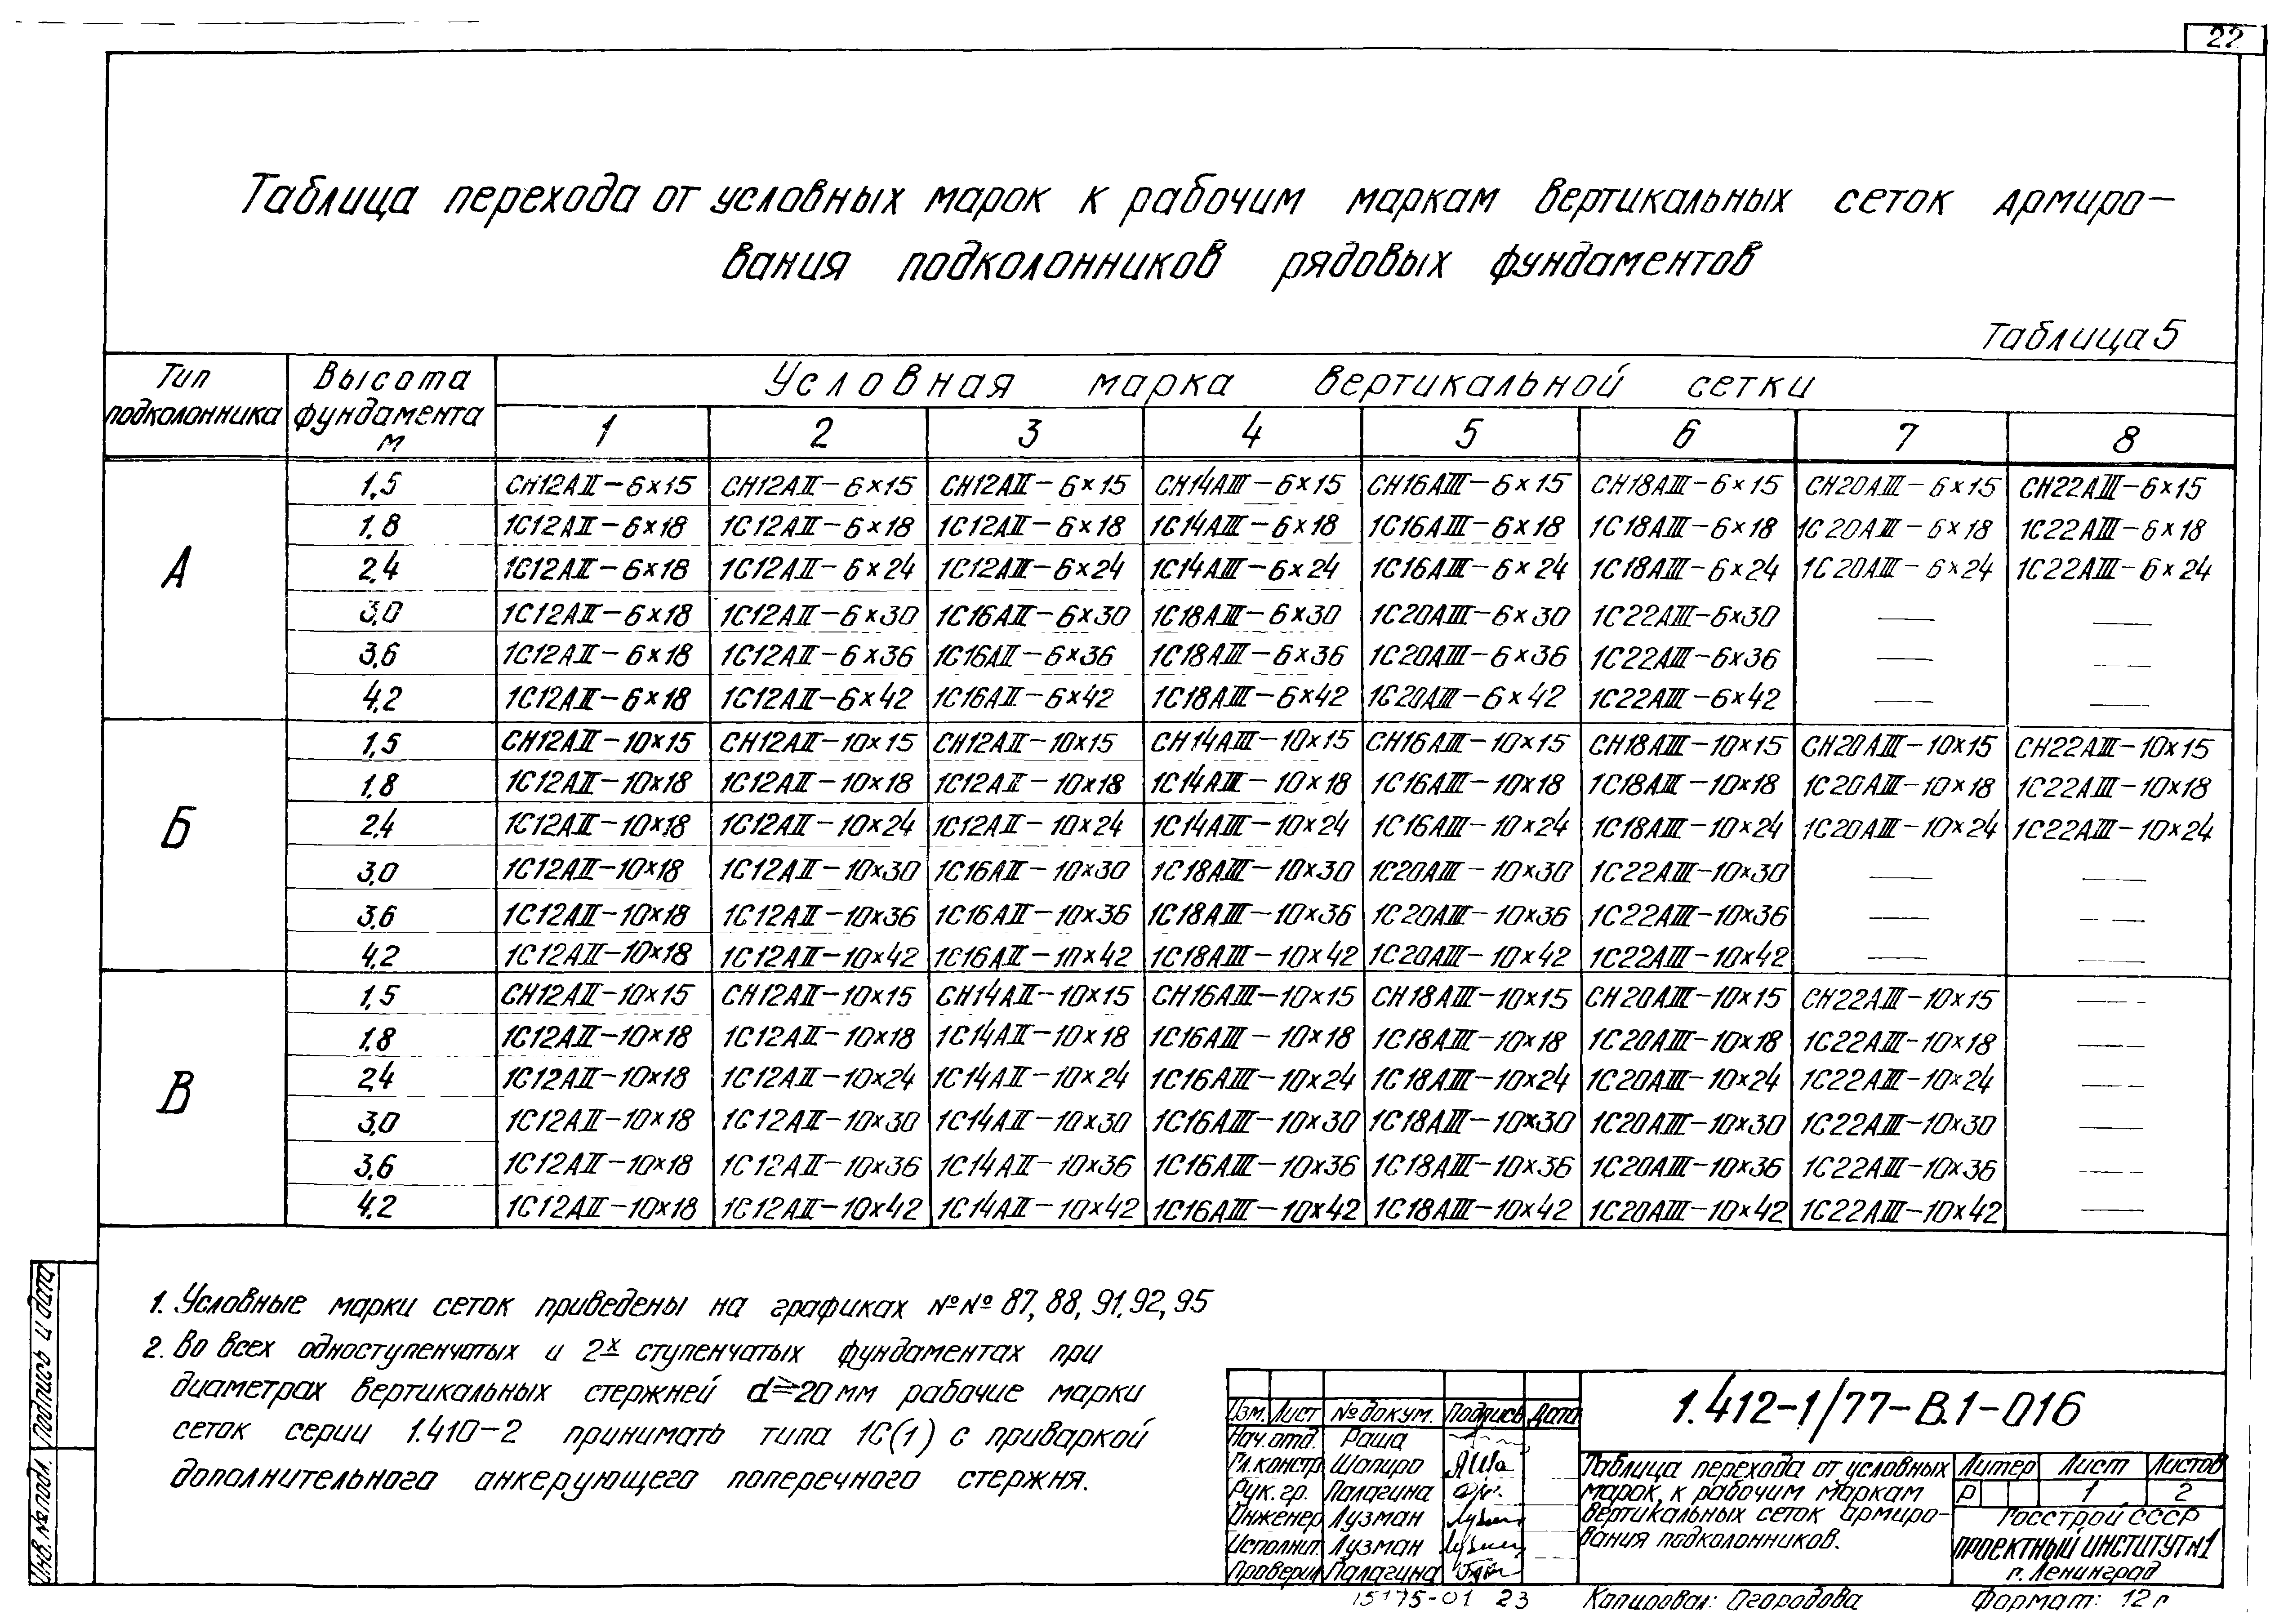 22
Таблица перехода от условных марок к рабочим маркам вертикальных сеток армиро-
вания подколонников рядовых фундаментов
Таблица 5
Тип подколонника | Высота фундамента м | Условная марка вертикальной сетки
1 | 2 | 3 | 4 | 5 | 6 | 7 | 8
А
1,5 | СН12АII-6×15 | СН12АII-6×15 | СН12АII-6×15 | СН14АIII-6×15 | СН16АIII-6×15 | СН18АIII-6×15 | СН20АIII-6×15 | СН22АIII-6×15
1,8 | 1С12АII-6×18 | 1С12АII-6×18 | 1С12АII-6×18 | 1С14АIII-6×18 | 1С16АIII-6×18 | 1С18АIII-6×18 | 1С20АIII-6×18 | 1С22АIII-6×18
2,4 | 1С12АII-6×18 | 1С12АII-6×24 | 1С12АII-6×24 | 1С14АIII-6×24 | 1С16АIII-6×24 | 1С18АIII-6×24 | 1С20АIII-6×24 | 1С22АIII-6×24
3,0 | 1С12АII-6×18 | 1С12АII-6×30 | 1С16АII-6×30 | 1С18АIII-6×30 | 1С20АIII-6×30 | 1С22АIII-6×30 | — | —
3,6 | 1С12АII-6×18 | 1С12АII-6×36 | 1С16АII-6×36 | 1С18АIII-6×36 | 1С20АIII-6×36 | 1С22АIII-6×36 | — | —
4,2 | 1С12АII-6×18 | 1С12АII-6×42 | 1С16АII-6×42 | 1С18АIII-6×42 | 1С20АIII-6×42 | 1С22АIII-6×42 | — | —
Б
1,5 | СН12АII-10×15 | СН12АII-10×15 | СН12АII-10×15 | СН14АIII-10×15 | СН16АIII-10×15 | СН18АIII-10×15 | СН20АIII-10×15 | СН22АIII-10×15
1,8 | 1С12АII-10×18 | 1С12АII-10×18 | 1С12АII-10×18 | 1С14АIII-10×18 | 1С16АIII-10×18 | 1С18АIII-10×18 | 1С20АIII-10×18 | 1С22АIII-10×18
2,4 | 1С12АII-10×18 | 1С12АII-10×24 | 1С12АII-10×24 | 1С14АIII-10×24 | 1С16АIII-10×24 | 1С18АIII-10×24 | 1С20АIII-10×24 | 1С22АIII-10×24
3,0 | 1С12АII-10×18 | 1С12АII-10×30 | 1С16АII-10×30 | 1С18АIII-10×30 | 1С20АIII-10×30 | 1С22АIII-10×30 | — | —
3,6 | 1С12АII-10×18 | 1С12АII-10×36 | 1С16АII-10×36 | 1С18АIII-10×36 | 1С20АIII-10×36 | 1С22АIII-10×36 | — | —
4,2 | 1С12АII-10×18 | 1С12АII-10×42 | 1С16АII-10×42 | 1С18АIII-10×42 | 1С20АIII-10×42 | 1С22АIII-10×42 | — | —
В
1,5 | СН12АII-10×15 | СН12АII-10×15 | СН14АII-10×15 | СН16АIII-10×15 | СН18АIII-10×15 | СН20АIII-10×15 | СН22АIII-10×15 | —
1,8 | 1С12АII-10×18 | 1С12АII-10×18 | 1С14АII-10×18 | 1С16АIII-10×18 | 1С18АIII-10×18 | 1С20АIII-10×18 | 1С22АIII-10×18 | —
2,4 | 1С12АII-10×18 | 1С12АII-10×24 | 1С14АII-10×24 | 1С16АIII-10×24 | 1С18АIII-10×24 | 1С20АIII-10×24 | 1С22АIII-10×24 | —
3,0 | 1С12АII-10×18 | 1С12АII-10×30 | 1С14АII-10×30 | 1С16АIII-10×30 | 1С18АIII-10×30 | 1С20АIII-10×30 | 1С22АIII-10×30 | —
3,6 | 1С12АII-10×18 | 1С12АII-10×36 | 1С14АII-10×36 | 1С16АIII-10×36 | 1С18АIII-10×36 | 1С20АIII-10×36 | 1С22АIII-10×36 | —
4,2 | 1С12АII-10×18 | 1С12АII-10×42 | 1С14АII-10×42 | 1С16АIII-10×42 | 1С18АIII-10×42 | 1С20АIII-10×42 | 1С22АIII-10×42 | —
1. Условные марки сеток приведены на графиках №№ 87, 88, 91, 92, 95
2. Во всех одноступенчатых и 2х ступенчатых фундаментах при
диаметрах вертикальных стержней d⩾20 мм рабочие марки
сеток серии 1.410-2 принимать типа 1С(1) с приваркой
дополнительного анкерующего поперечного стержня.
Подпись и дата
Инв. № подл.
Изм. Лист № докум. Подпись Дата
Нач. отд. Раша
Гл. констр Шапиро
Рук. гр. Палагина
Инженер Лузман
Исполнит. Лузман
Проверил Палагина
1.412-1/77-В.1-016
Таблица перехода от условных
марок к рабочим маркам
вертикальных сеток армиро-
вания подколонников.
Литер Лист Листов
Р 1 2
Госстрой СССР
ПРОЕКТНЫЙ ИНСТИТУТ №1
г. Ленинград
15175-01 23
Копировал: Огородова
Формат: 12г